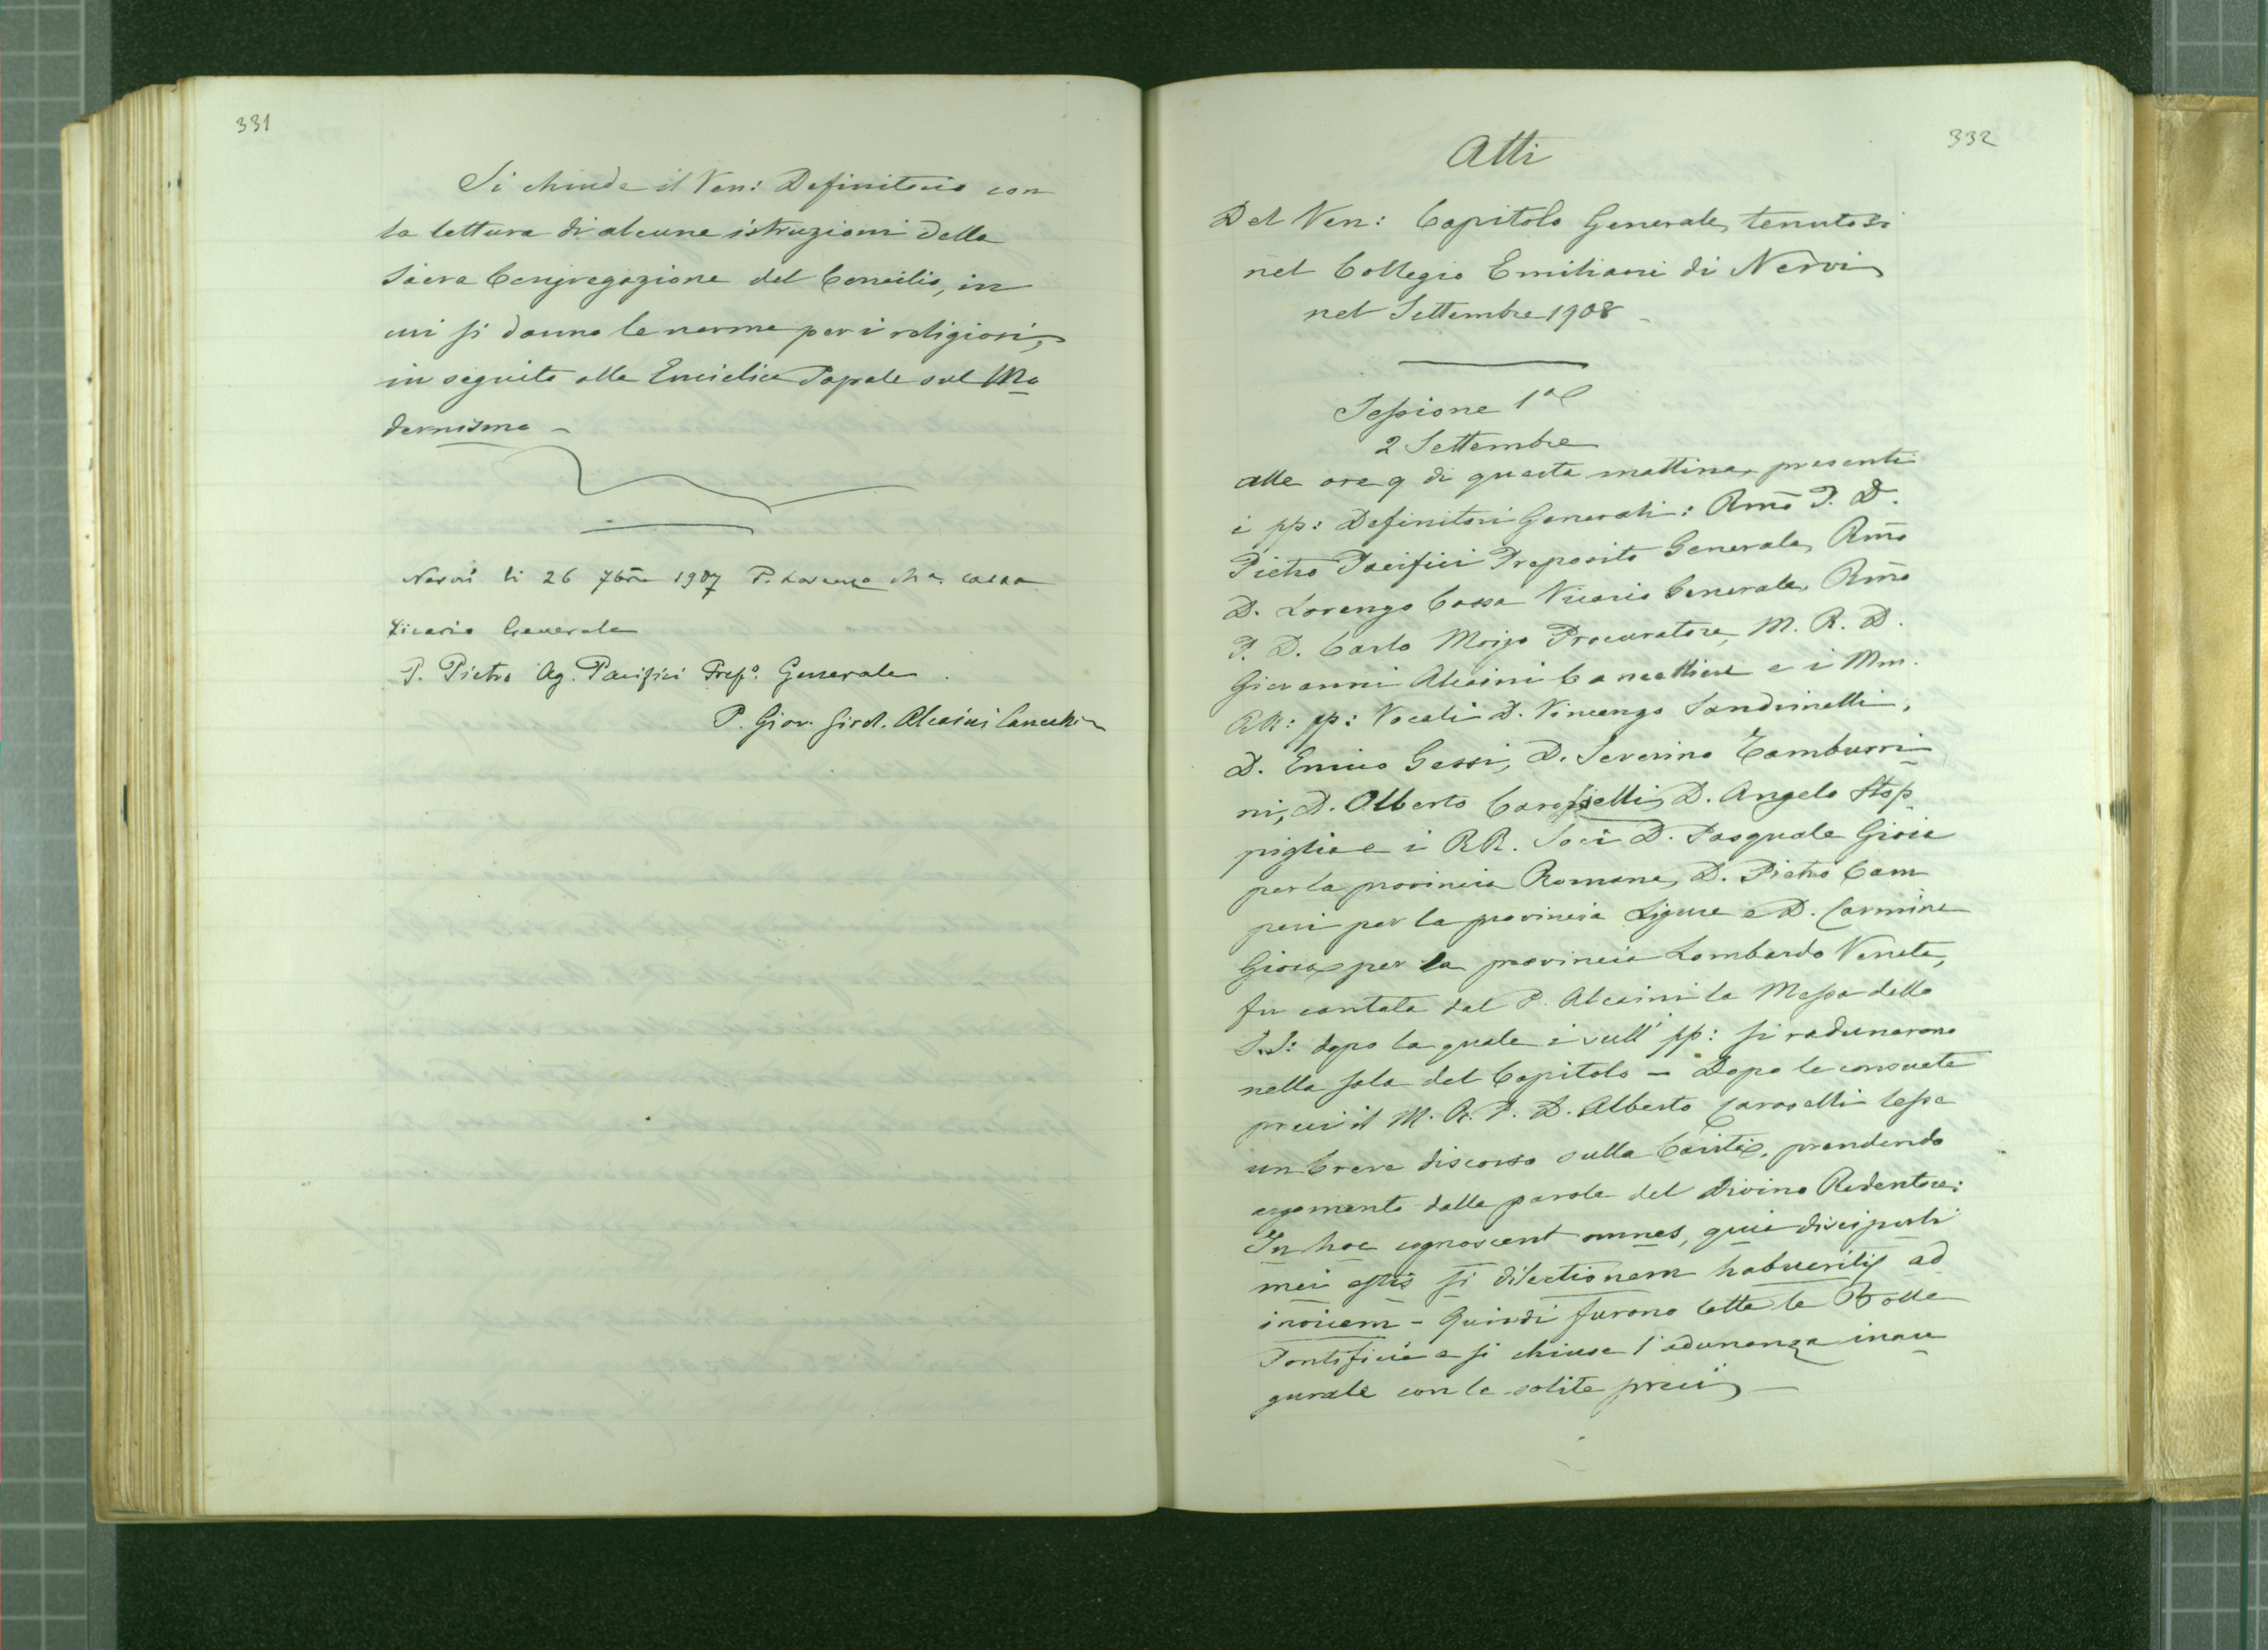 331
Si chiude il Ven: Definitorio con
la lettura di alcune istruzioni della
Sacra Congregazione del Concilio, in
cui si danno le norme per i religiosi,
in seguito alla Enciclica Papale sul Mo
dernismo –
Nervi li 26 7bre 1907 P. Lorenzo Ma. Cossa
Vicario Generale
P. Pietro Ag. Pacifici Prep.o Generale
P. Giov. Girol. Alcaini Cancell.
332
Atti
Del Ven: Capitolo Generale, tenutosi
nel Collegio Emiliani di Nervi
nel Settembre 1908 –
Sessione 1a
2 Settembre
alle ore 9 di questa mattina, presenti
i pp: Definitori Generali: Rmo P. D.
Pietro Pacifici Preposito Generale, Rmo
D. Lorenzo Cossa Vicario Generale, Rmo
P. D. Carlo Moizo Procuratore, M. R. D.
Giovanni Alcaini Cancelliere e i Mm.
RR: pp: Vocali D. Vincenzo Sandrinelli,
D. Ennio Gessi, D. Severino Tamburri
ni, D. Alberto Caroselli, D. Angelo Stop
piglia e i RR. Soci D. Pasquale Gioia
per la provincia Romana, D. Pietro Cam
peri per la provincia Ligure e D. Carmine
Gioia per la provincia Lombardo Veneta,
fu cantata dal P. Alcaini la Messa dello
S.S: dopo la quale i sull' pp: si radunarono
nella sala del Capitolo – Dopo le consuete
preci il M. R. P. D. Alberto Caroselli lesse
un breve discorso sulla Carità, prendendo
argomento dalle parole del Divino Redentore:
In hoc cognoscent omnes, quia discipuli
mei estis si dilectionem habueritis ad
invicem – Quindi furono lette le Bolle
Pontificie e si chiuse l'adunanza inau
gurale con le solite preci –